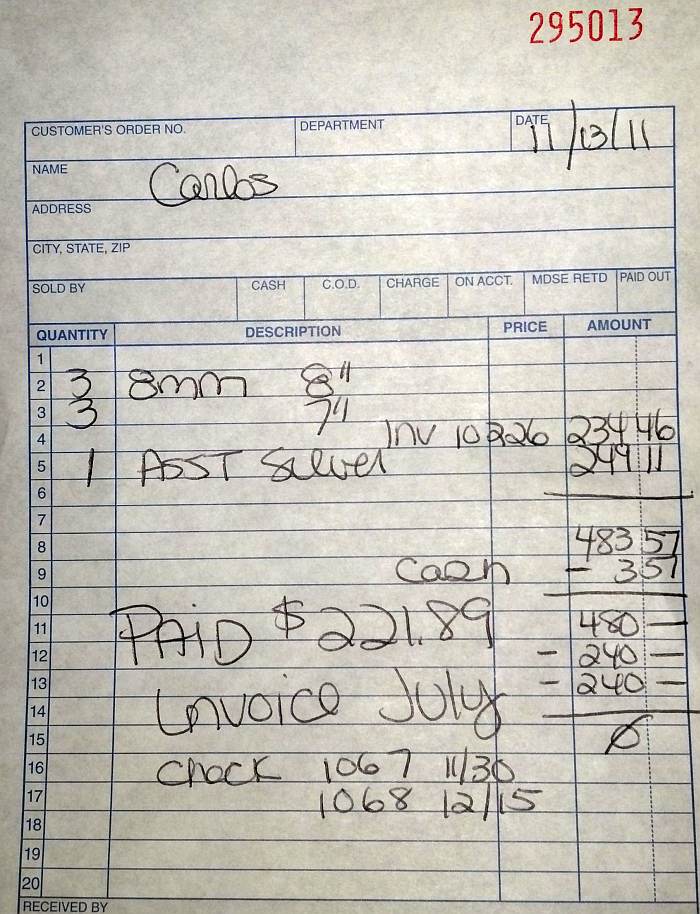 295013
CUSTOMER'S ORDER NO. DEPARTMENT DATE 11/13/11
NAME Carlos
ADDRESS
CITY, STATE, ZIP
SOLD BY CASH C.O.D. CHARGE ON ACCT. MDSE RETD PAID OUT
QUANTITY DESCRIPTION PRICE AMOUNT
1
2 3 8mm 8"
3 3 7"
4 Inv 10226 234 46
5 1 ASST Silver 249 11
6
7
8 483 57
9 Cash - 3 57
10
11 PAID $221.89 480 —
12 - 240 —
13 Invoice July - 240 —
14
15 0
16 Check 1067 11/30
17 1068 12/15
18
19
20
RECEIVED BY